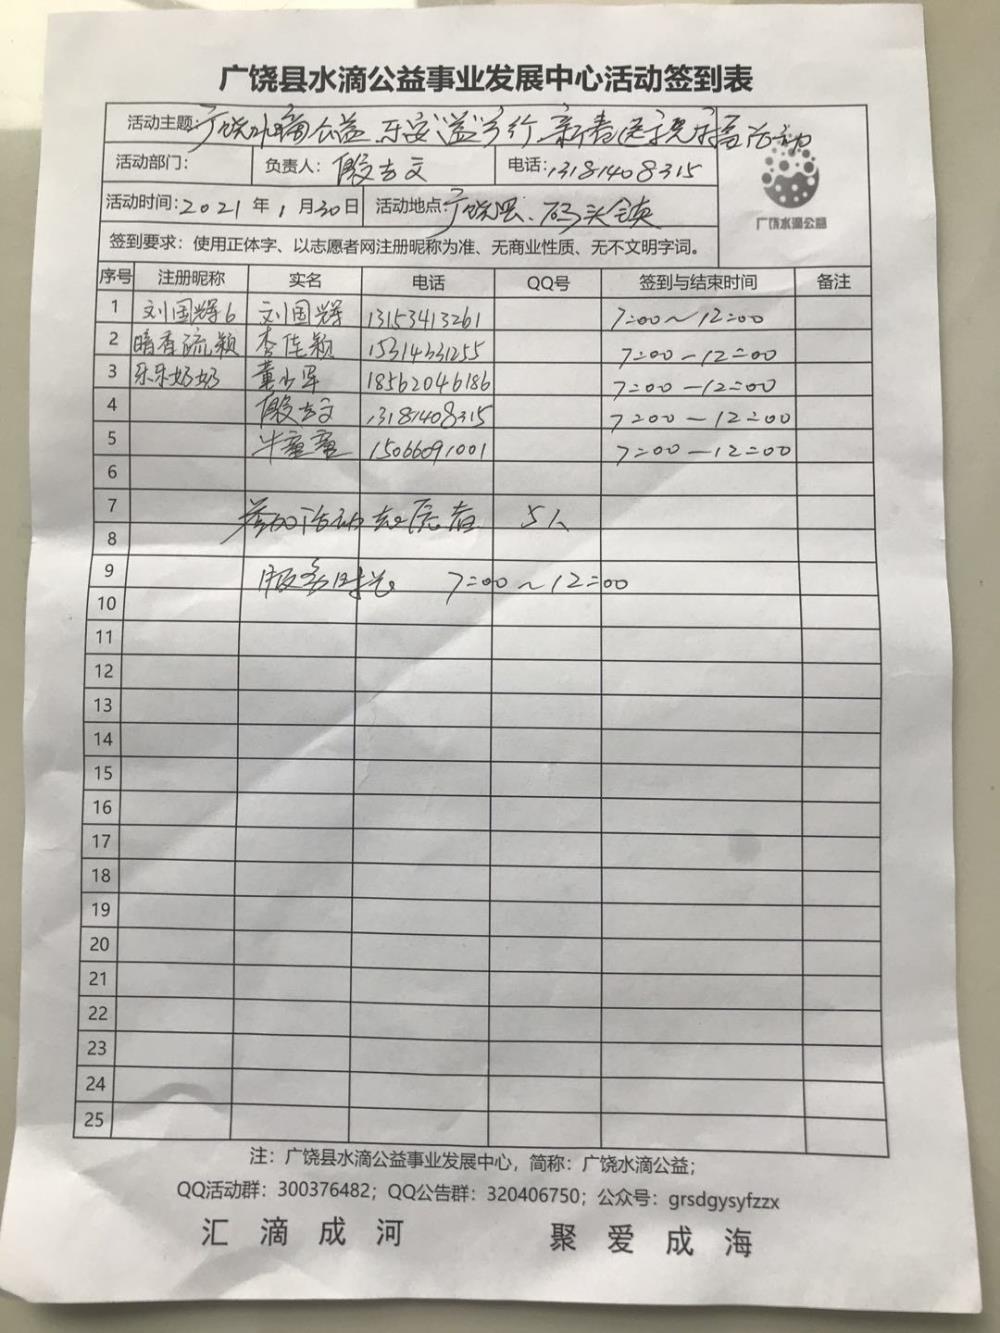 广饶县水滴公益事业发展中心活动签到表
活动主题: 广饶水滴公益.乐安"益"乡行 新春送祝福活动
活动部门: 负责人: 殷志文 电话: 13181408315
活动时间: 2021 年 1 月 30 日 活动地点: 广饶县.码头镇
广饶水滴公益
签到要求: 使用正体字、以志愿者网注册昵称为准、无商业性质、无不文明字词。
序号 注册昵称 实名 电话 QQ号 签到与结束时间 备注
1 刘国辉6 刘国辉 13153413261 7:00~12:00
2 暗香疏颖 李佳颖 15314331255 7:00-12:00
3 乐乐奶奶 董少军 18562046186 7:00-12:00
4 殷志文 13181408315 7:00-12:00
5 牛童童 15066091001 7:00-12:00
6
7 参加活动志愿者 5人
8
9 服务时长 7:00~12:00
10
11
12
13
14
15
16
17
18
19
20
21
22
23
24
25
注: 广饶县水滴公益事业发展中心, 简称: 广饶水滴公益;
QQ活动群: 300376482; QQ公告群: 320406750; 公众号: grsdgysyfzzx
汇滴成河 聚爱成海